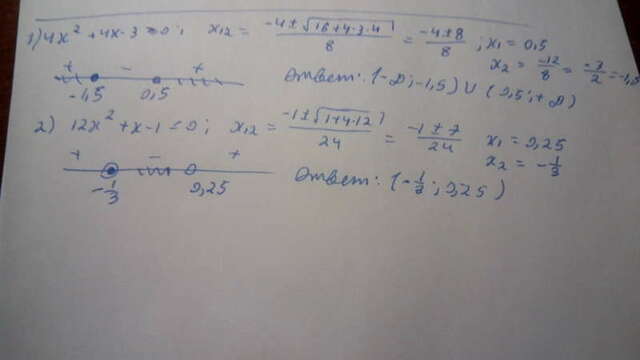 1) 4x² + 4x - 3 = 0 ; x₁,₂ = (-4 ± √(16+4·3·4)) / 8 = (-4 ± 8) / 8 ; x₁ = 0,5
x₂ = -12/8 = -3/2 = -1,5
+ - +
-1,5 0,5 Ответ: (-∞; -1,5) ∪ (0,5; +∞)
2) 12x² + x - 1 = 0 ; x₁,₂ = (-1 ± √(1+4·12)) / 24 = (-1 ± 7) / 24 x₁ = 0,25
x₂ = -1/3
+ - +
-1/3 0,25 Ответ: (-1/3; 0,25)